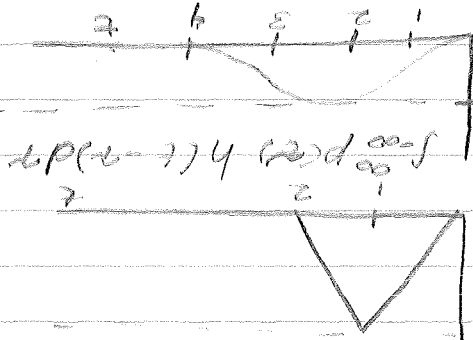 1 2 t
∫_{-∞}^{∞} p(τ) h(t-τ) dτ
1 2 3 4 t